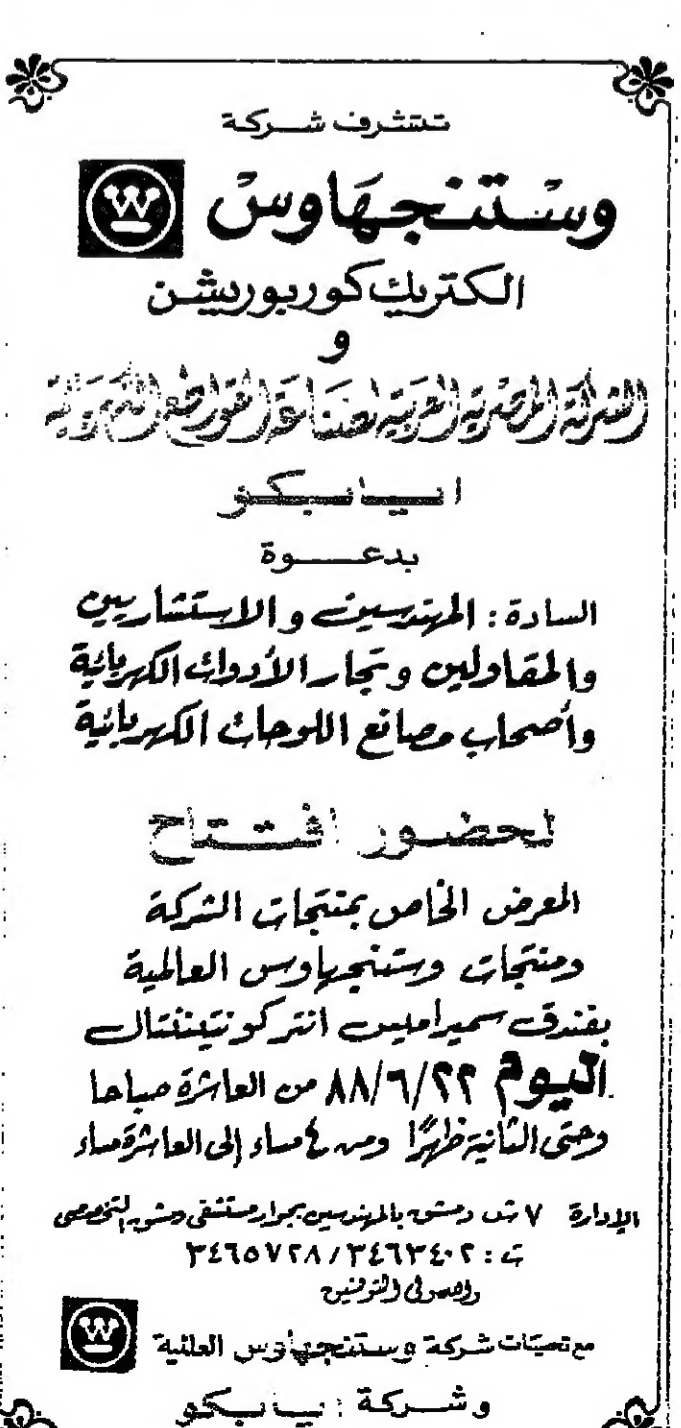 تتشرف شركة
وستنجهاوس
الكتريك كوربوريشن
و
الشركة المصرية العربية لصناعة القواطع الكهربائية
بدعوة
السادة : المهندسين والاستشاريين
والمقاولين وتجار الأدوات الكهربائية
وأصحاب مصانع اللوحات الكهربائية
لحضور افتتاح
المعرض الخاص بمنتجات الشركة
ومنتجات وستنجهاوس العالمية
بفندق سميراميس انتركونتيننتال
اليوم ٨٨/٦/٢٢ من العاشرة صباحا
وحتى الثانية ظهرًا ومن ٤ مساء إلى العاشرة مساء
الإدارة ٧ ش دمشق بالمهندسين بجوار مستشفى دمشق التخصصى
ت : ٣٤٦٣٤٠٢ / ٣٤٦٥٧٢٨
مع تحيات شركة وستنجهاوس العالمية
وشركة